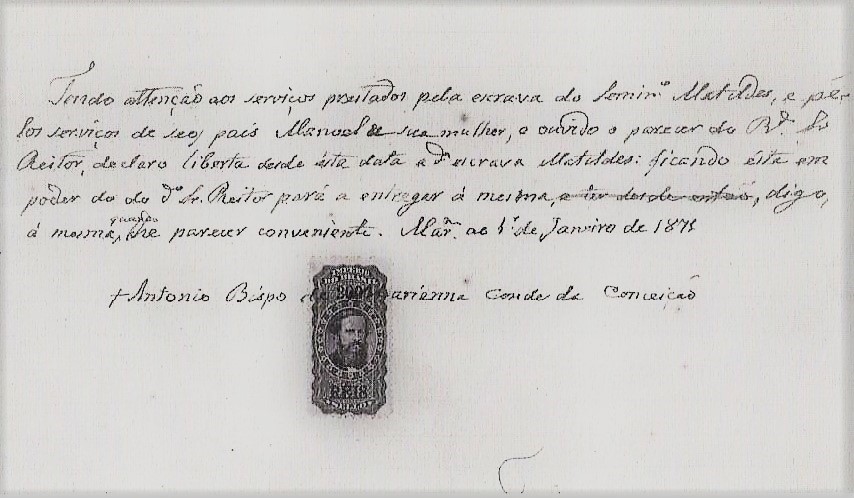 Tendo attenção aos serviços prestados pela escrava do Semin.º Matildes, e pe-
los serviços de seos pais Manoel e sua mulher, e ouvido o parecer do R.do Sr.
Reitor, declaro liberta desde ésta data a d.ª escrava Matildes: ficando ésta em
poder do do d.º Sr. Reitor pará a entregar á mesma, e ter desde então, digo,
á mesma, quando lhe parecer conveniente. Mar.na ao 1.º de Janeiro de 1871
† Antonio Bispo de Marianna Conde da Conceição
IMPERIO
DO BRASIL
REIS
SELLO